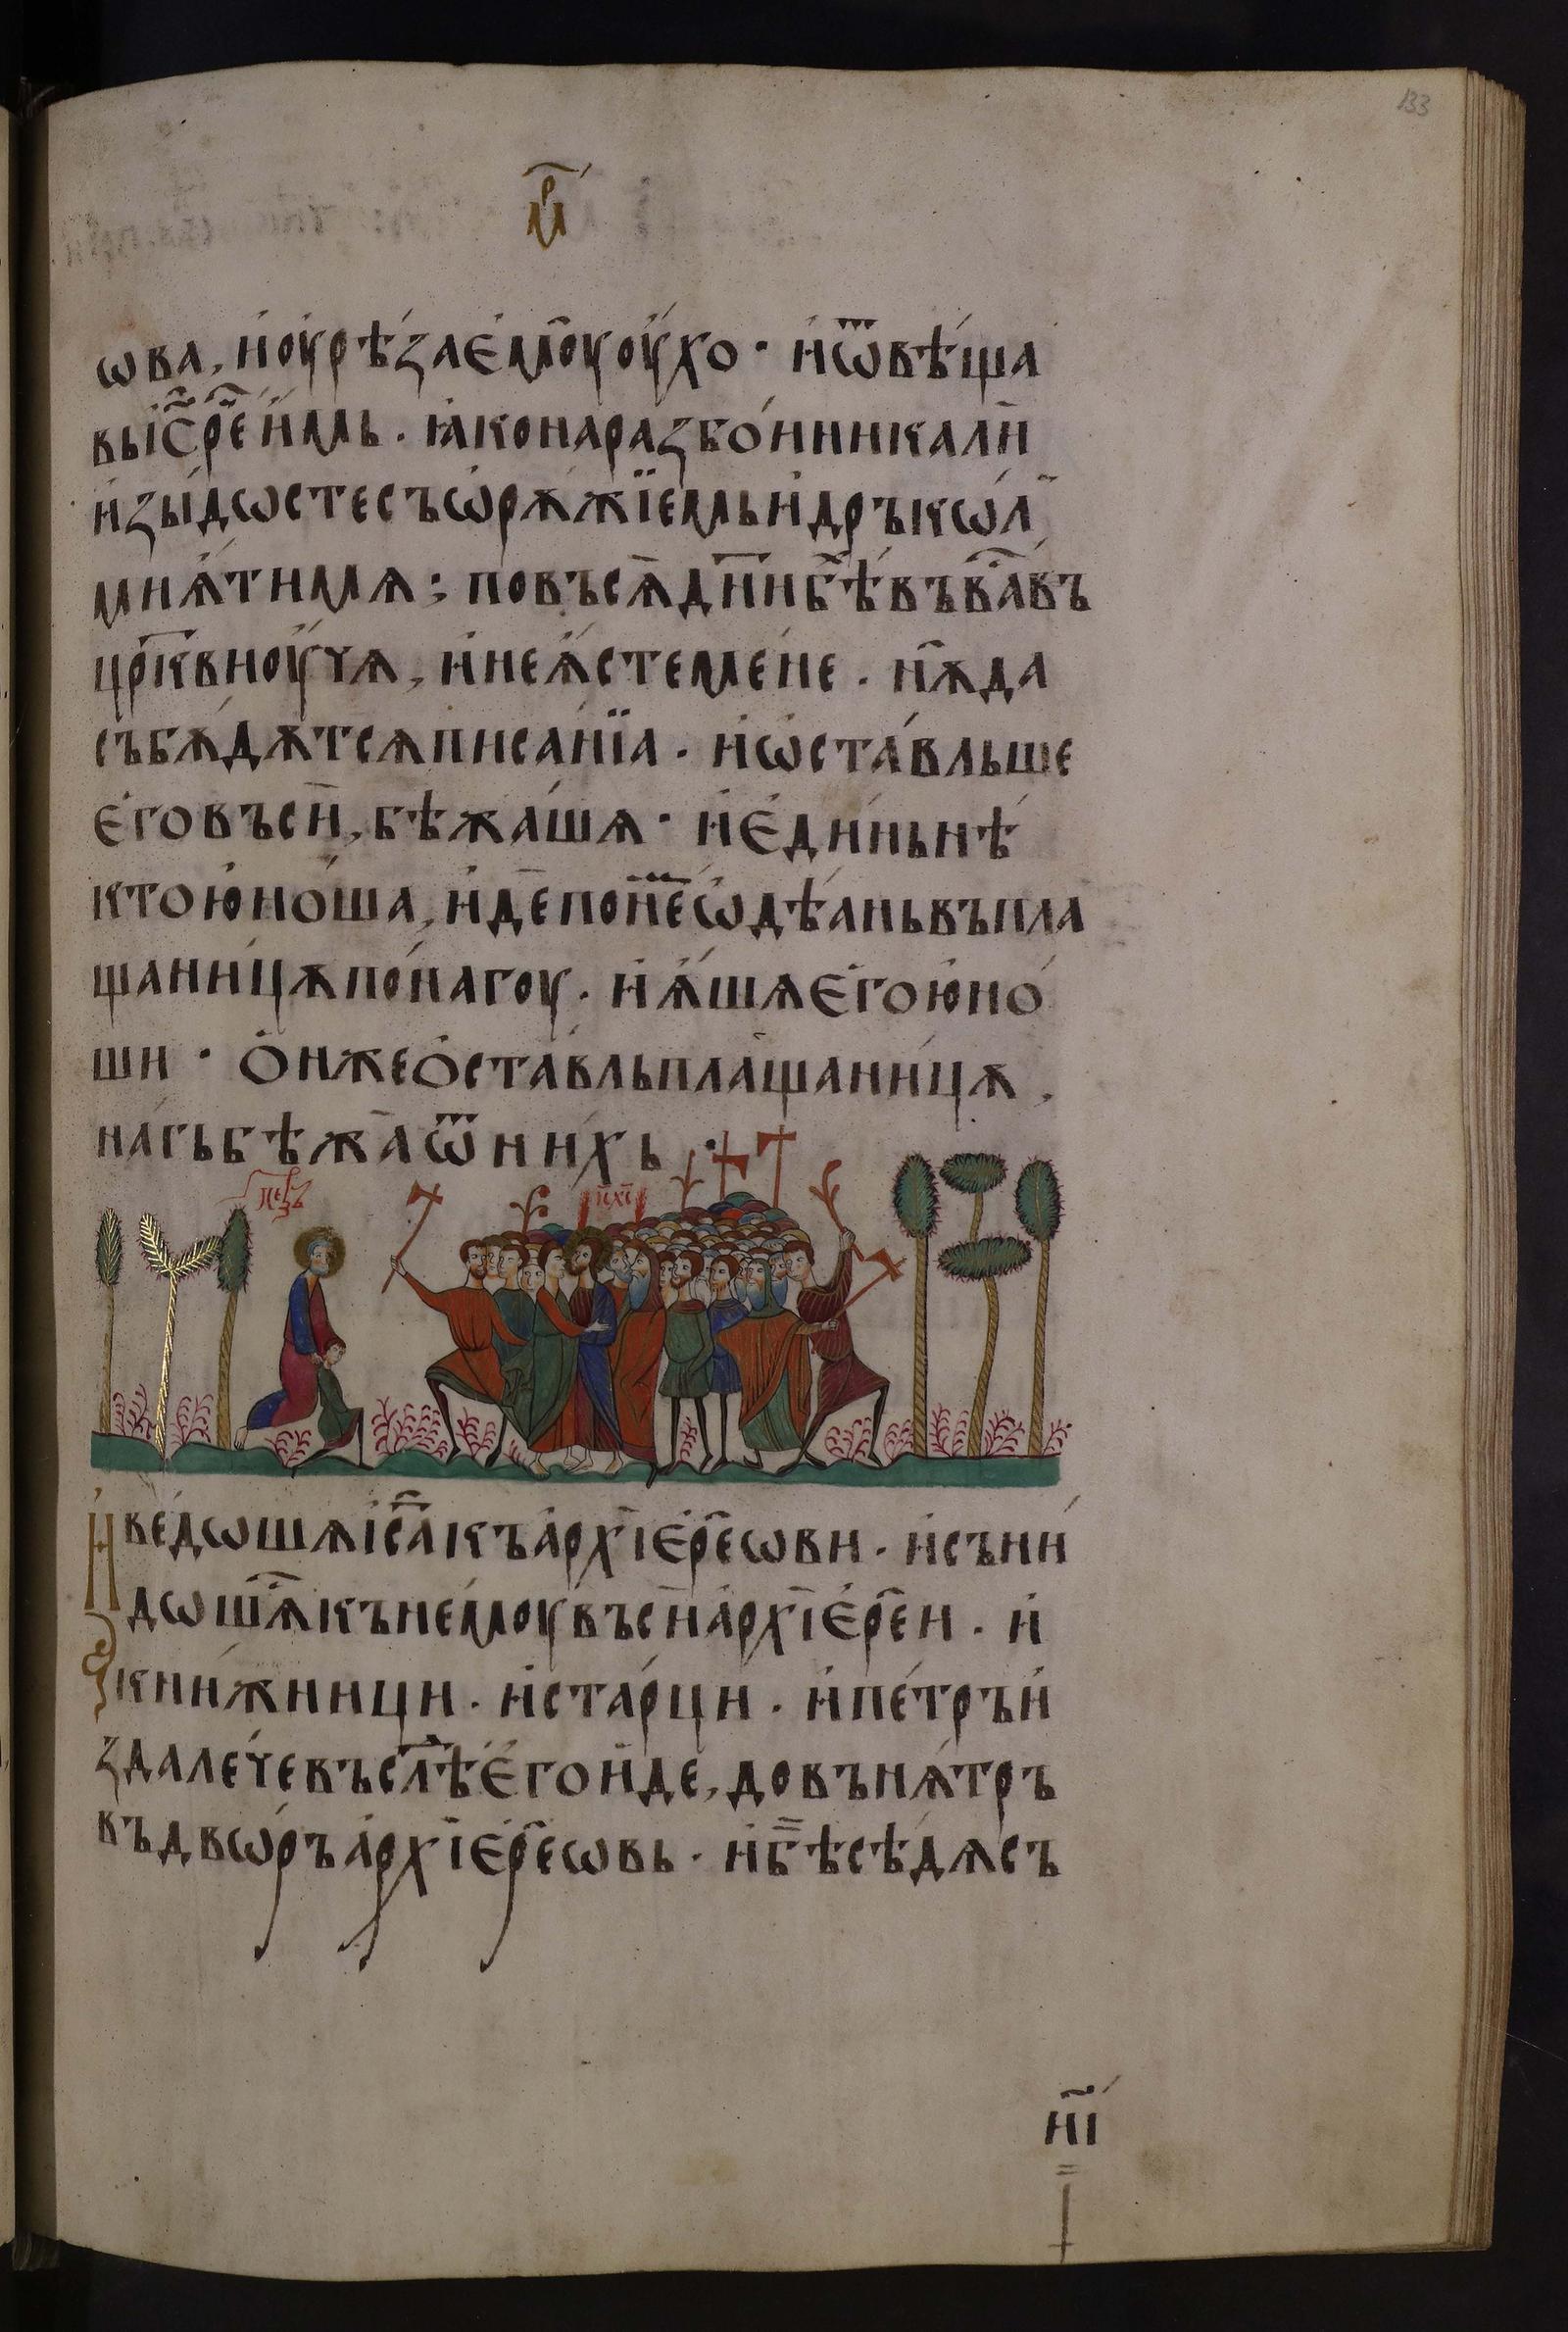 133
мр҃
ѡва, и҆оурѣ́заемоуоу҆́хо · и҆ѿвѣ́ща
выі҆с҃рее҆́имь . ꙗ҆конаразбо́нникали
и҆зы́дѡстесъѡ҆рѫ́жїемьи҆дръкѡ́л
мнѧ́тимѧ : повъсѧ҄днибѣ҄въва́въ
цр҃квиоу҆чѧ, и҆неꙗ҆́стемене . нѫ҄да
събѫ́дѫтсѧписа́нїа . и҆ѡ҆ста́вльше
є҆говъси, бѣжа́шѧ · и҆є҆ди́ньнѣ́
ктою҆но́ша, и҆́депонеѡ҆дѣ́аньвъпла
щани́цѫпо́нагоу . и҆ꙗ҆́шѧє҆гою҆но́
ши · ѻ҆нжеѻ҆ста́вльплащани́цѫ .
на́гьбѣжаѿни́хь .
Петръ
і҃с х҃с
И҆ве́дѡшѧі҆с҃акъа҆рхїє҆реѡви . и҆съни́
дѡшѧ҄кънемоувъсиа҆рхїє҆реи . и҆
кни́жници . и҆ста́рци . и҆пе́тръи҆
здале́чевъслѣє҆гои҆де, довънѫ́тръ
въдвѡ́ръа҆рхїє҆реѡвь . и҆бѣсѣдѧсъ
ні҃